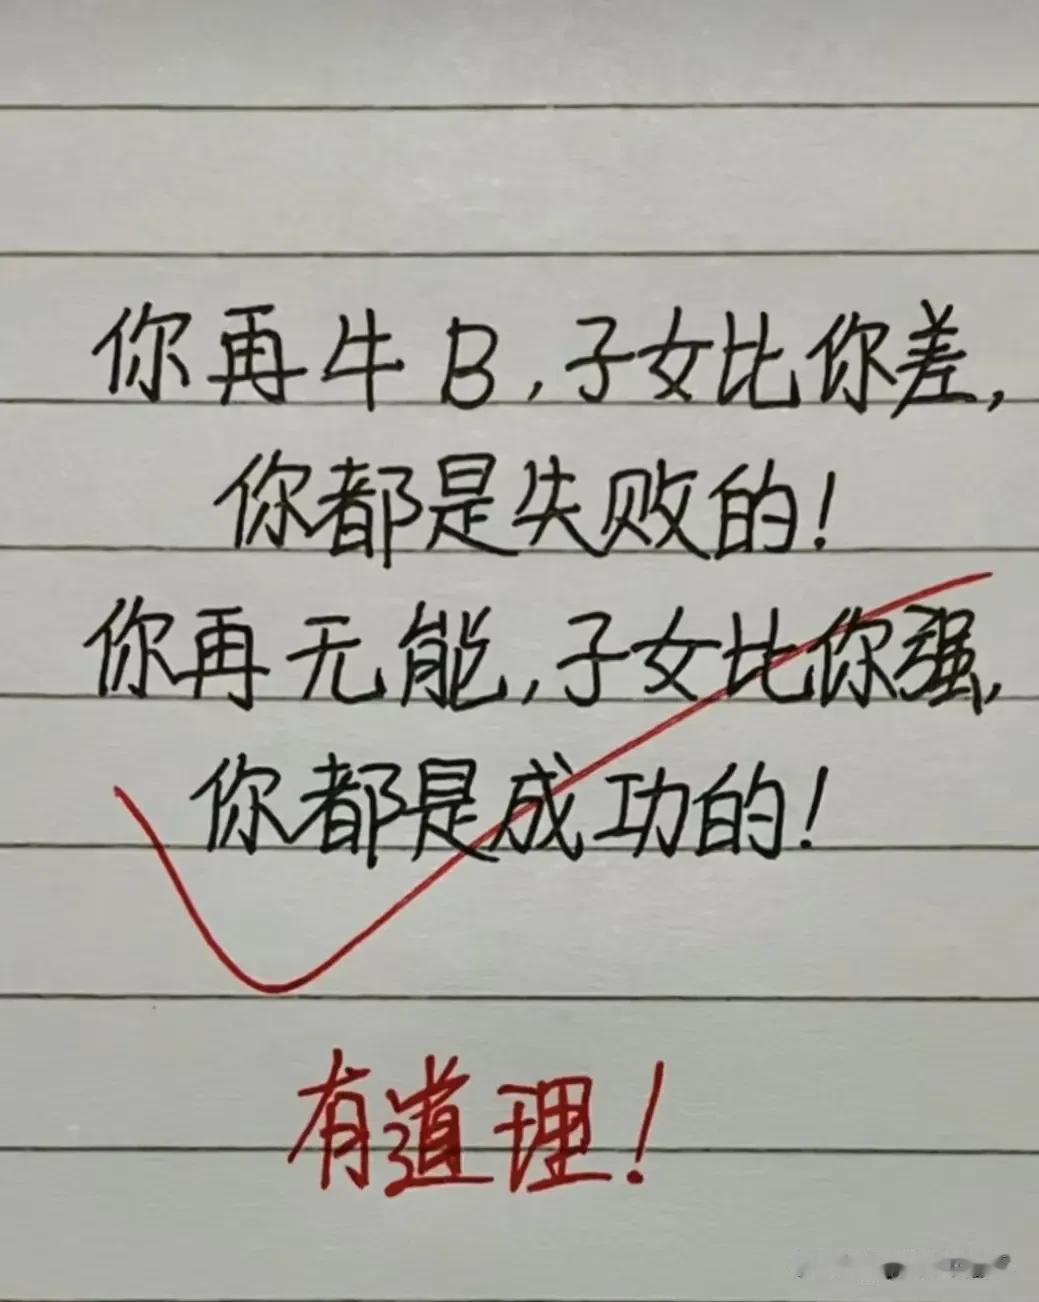 你再牛B,子女比你差,
你都是失败的!
你再无能,子女比你强,
你都是成功的!
有道理!